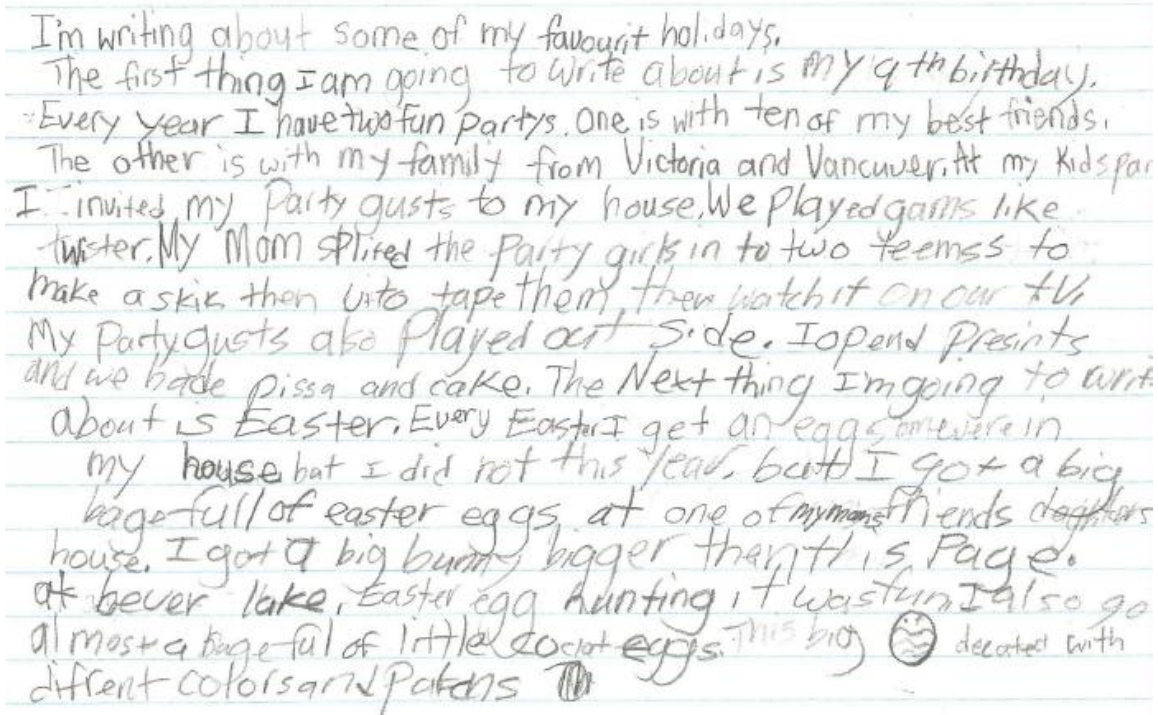 I'm writing about some of my favourit holidays.
The first thing I am going to write about is my 9th birthday.
Every year I have two fun partys. One is with ten of my best friends.
The other is with my family from Victoria and Vancuver. At my Kids par
I invited my Party gusts to my house. We Played gams like
twister. My Mom splited the Party girls in to two teemss to
make a skik then vito tape them then watch it on our tV.
My Party gusts also Played out Side. I opend Presints
and we hade pissa and cake. The Next thing I'm going to writ
about is Easter. Every Easter I get an egg somewere in
my house but I did not this year. but I got a big
bage full of easter eggs at one of my moms friends
house. I got a big bunny bigger then this Page.
at bever lake. Easter egg hunting it was fun I also go
almost a bage ful of little coclat eggs. This big decated with
difrent colors and Patens